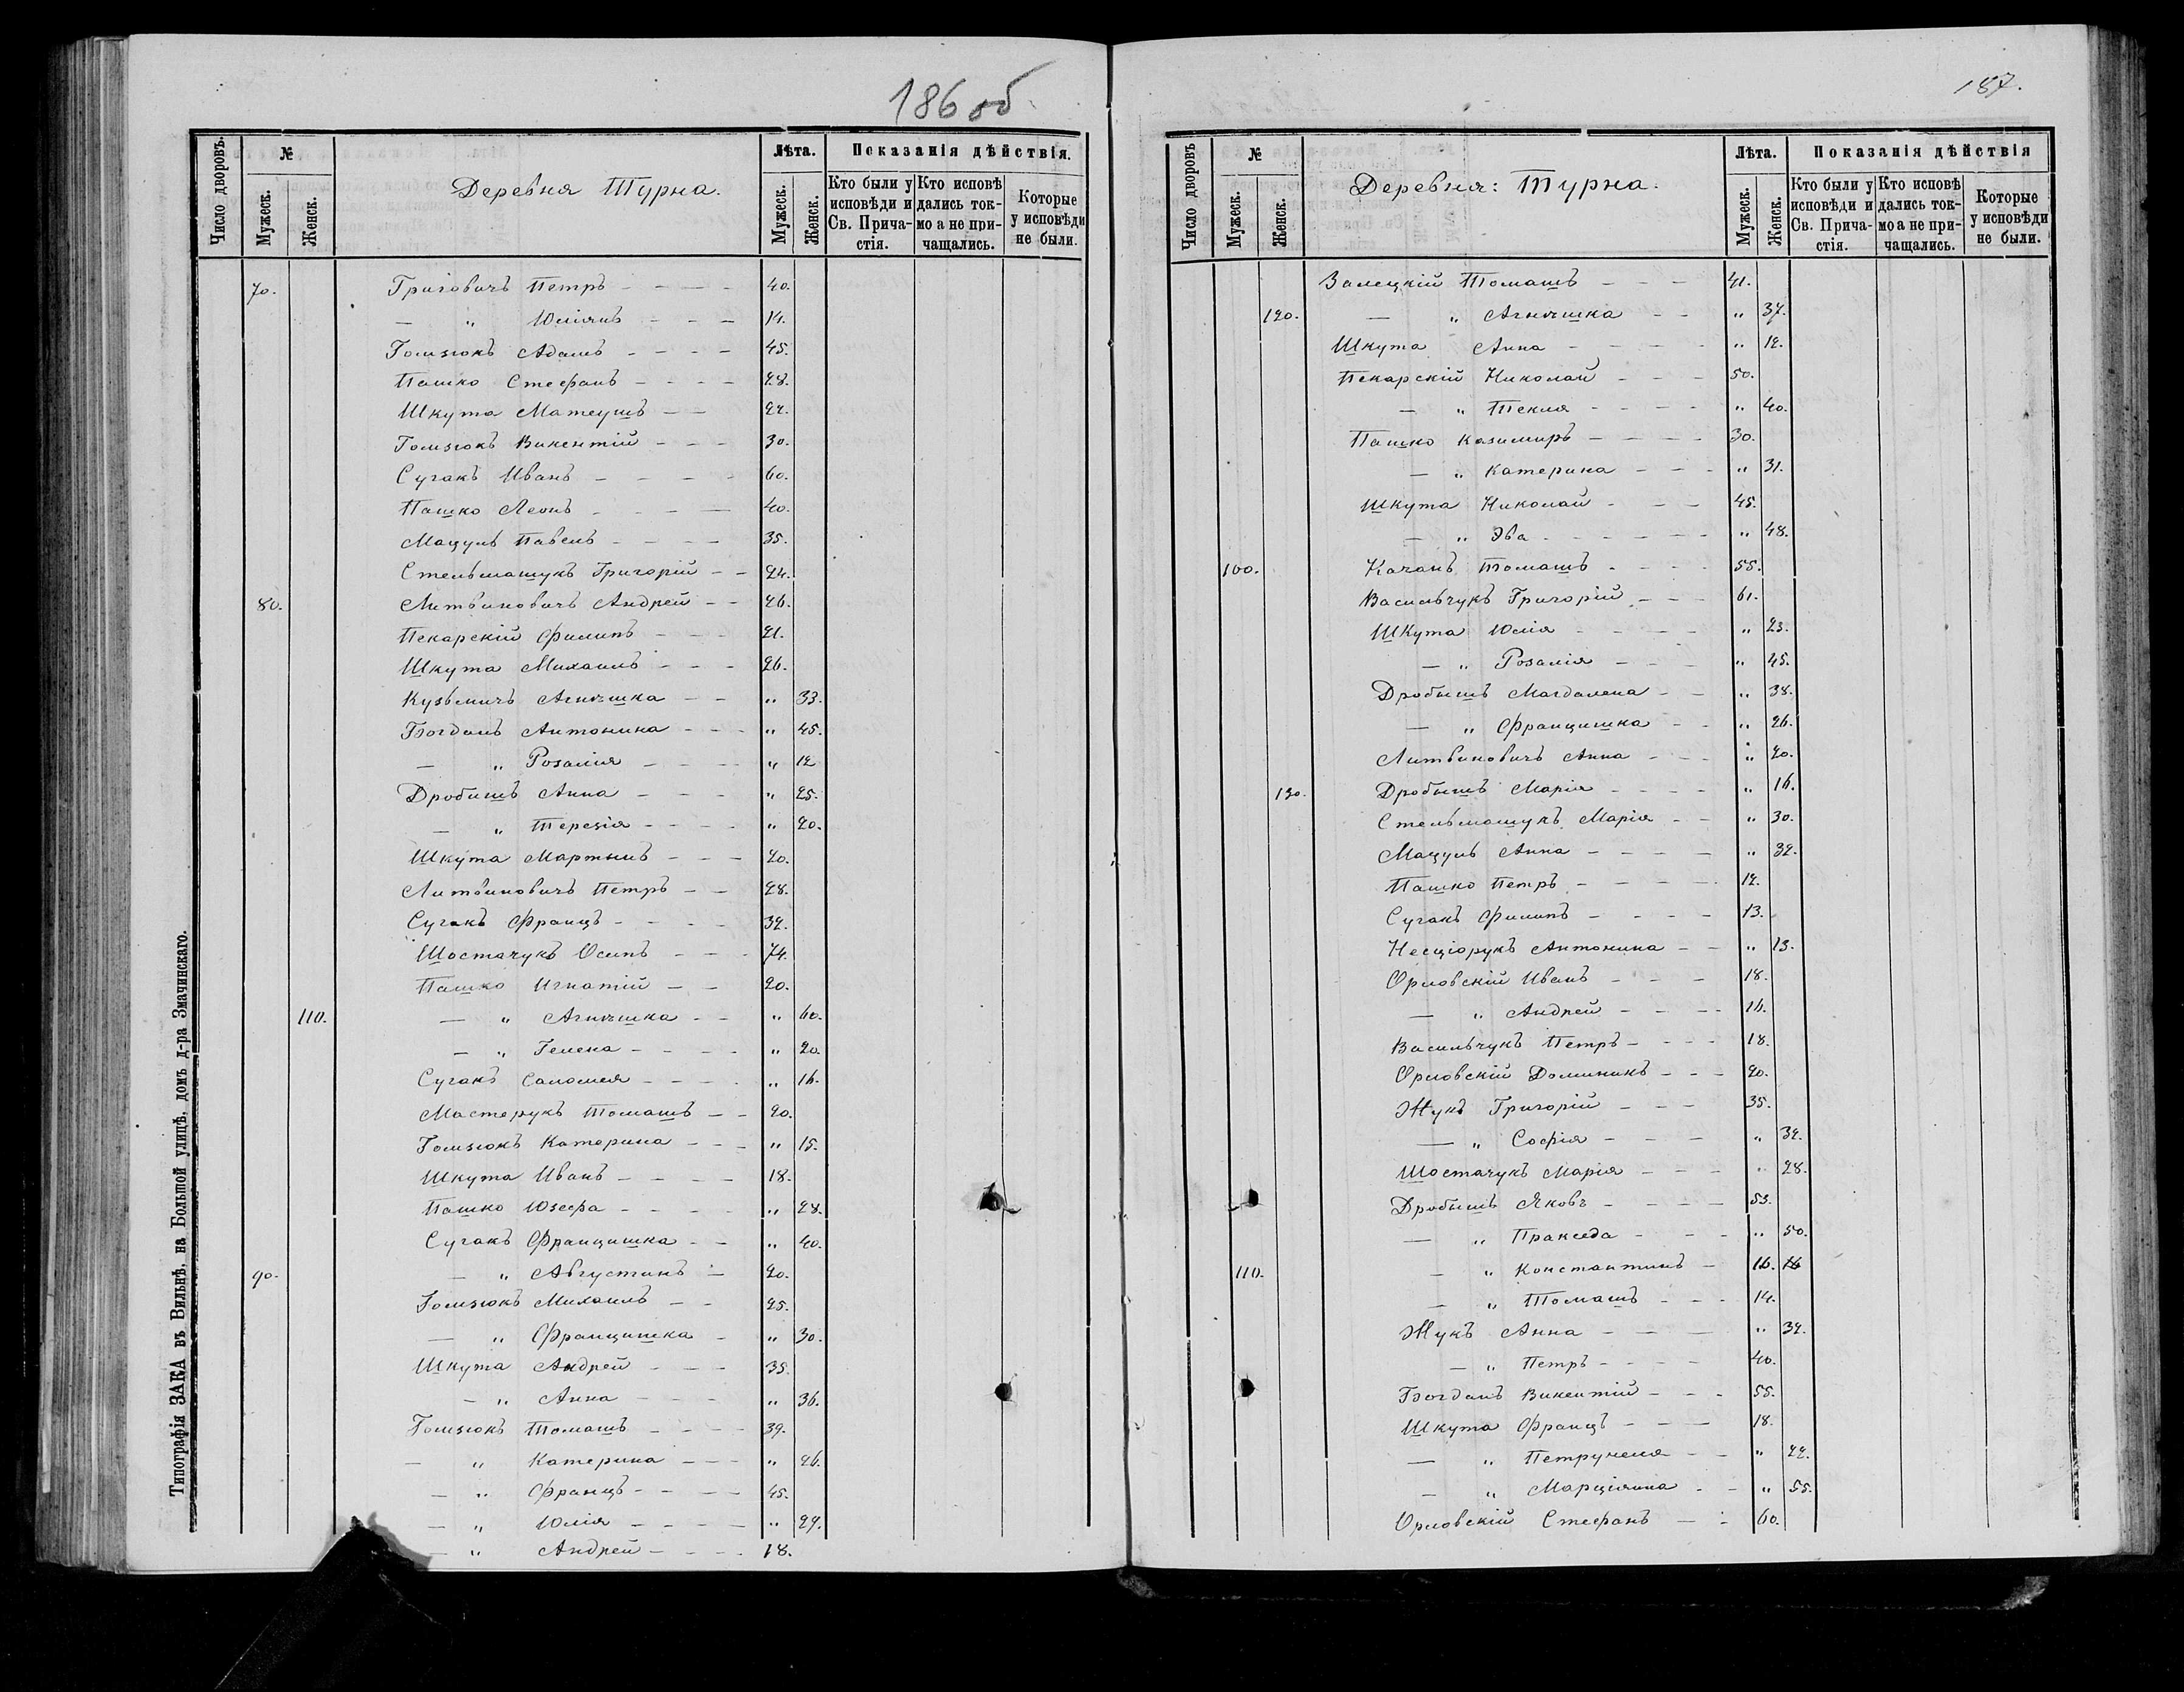 186 об
Число дворовъ.
№
Мужеск.
Женск.
Деревня Турна.
Лѣта.
Мужеск.
Женск.
Показанія дѣйствія.
Кто были у исповѣди и Св. Прича-стія.
Кто исповѣ дались ток-мо а не при-чащались.
Которые у исповѣди не были.
70. Григовичъ Петръ - - - - 40.
— „ Юліянъ - - - 14.
Гомзюкъ Адамъ - - - - 45.
Пашко Стефанъ - - - - 28.
Шкута Матеушъ - - 22.
Гомзюкъ Викентій - - - 30.
Сугакъ Иванъ - - - - 60.
Пашко Леонъ - - - - 40.
Мацуль Павелъ - - - - 35.
Стельмашукъ Григорій - - 24.
80. Литвиновичъ Андрей - - 26.
Пекарскій Филипъ - - - 21.
Шкута Михаилъ - - - 26.
Кузьмичъ Агнѣшка - - „ 33.
Богданъ Антонина - - - „ 45.
— „ Розалія - - - - „ 12
Дробишъ Анна - - - - „ 25.
— „ Терезія - - - - „ 20.
Шкута Мартынъ - - - 20.
Литвиновичъ Петръ - - 28.
Сугакъ Францъ - - - - 32.
Шостачукъ Осипъ - - - 74.
Пашко Игнатій - - 20.
110. — „ Агнѣшка - - „ 60.
— „ Гелена - - - - „ 20.
Сугакъ Саломея - - - - „ 16.
Мастерукъ Томашъ - - 20.
Гомзюкъ Катерина - - - „ 15.
Шкута Иванъ - - - - 18.
Пашко Юзефа - - - - „ 28.
Сугакъ Францишка - - „ 40.
90. — „ Августинъ - 20.
Гомзюкъ Михаилъ - - 25.
— „ Францишка - „ 30.
Шкута Андрей - - - 35.
— „ Анна - - - „ 36.
Гомзюкъ Томашъ - - - - 39.
— „ Катерина - - - „ 26.
— „ Францъ - - - - 45.
— „ Юлія - - - - „ 27.
— „ Андрей - - - - 18.
Типографія ЗАКА въ Вильнѣ, на Большой улицѣ, домъ д-ра Змачинскаго.
187.
Число дворовъ
№
Мужеск.
Женск.
Деревня: Турна.
Лѣта.
Мужеск.
Женск.
Показанія дѣйствія
Кто были у исповѣди и Св. Прича-стія.
Кто исповѣ дались ток-мо а не при-чащались.
Которые у исповѣди не были.
Залецкій Томашъ - - - 41.
120. — „ Агнѣшка - - „ 37.
Шкута Анна - - - - - „ 12.
Пекарскій Николай - - - 50.
— „ Текля - - - - „ 40.
Пашко Казимиръ - - - - 30.
— „ Катерина - - - „ 31.
Шкута Николай - - - 45.
— „ Эва - - - - - - „ 48.
100. Качанъ Томашъ - - - - 55.
Васильчукъ Григорій - - - 61.
Шкута Юлія - - - - „ 23.
— „ Розалія - - - „ 45.
Дробышъ Магдалена - - „ 38.
— „ Францишка - - „ 26.
Литвиновичъ Анна - - - „ 20.
130. Дробышъ Марія - - - - „ 16.
Стельмашукъ Марія - - „ 30.
Мацуль Анна - - - - „ 32.
Пашко Петръ - - - - 12.
Сугакъ Филипъ - - - - 13.
Несціорукъ Антонина - - „ 13.
Орловскій Иванъ - - - 18.
— „ Андрей - - - 16.
Васильчукъ Петръ - - - - 18.
Орловскій Доминикъ - - - 20.
Жукъ Григорій - - - 35.
— „ Софія - - - „ 32.
Шостачукъ Марія - - - „ 28.
Дробышъ Яковъ - - - - 53.
— „ Пракседа - - - „ 50.
110. — „ Константинъ - 16.
— „ Томашъ - - - 14.
Жукъ Анна - - - - „ 32.
— „ Петръ - - - - 40.
Богданъ Викентій - - - 55.
Шкута Францъ - - - 18.
— „ Петрунеля - - „ 22.
— „ Марціянна - - „ 55.
Орловскій Стефанъ - - 60.